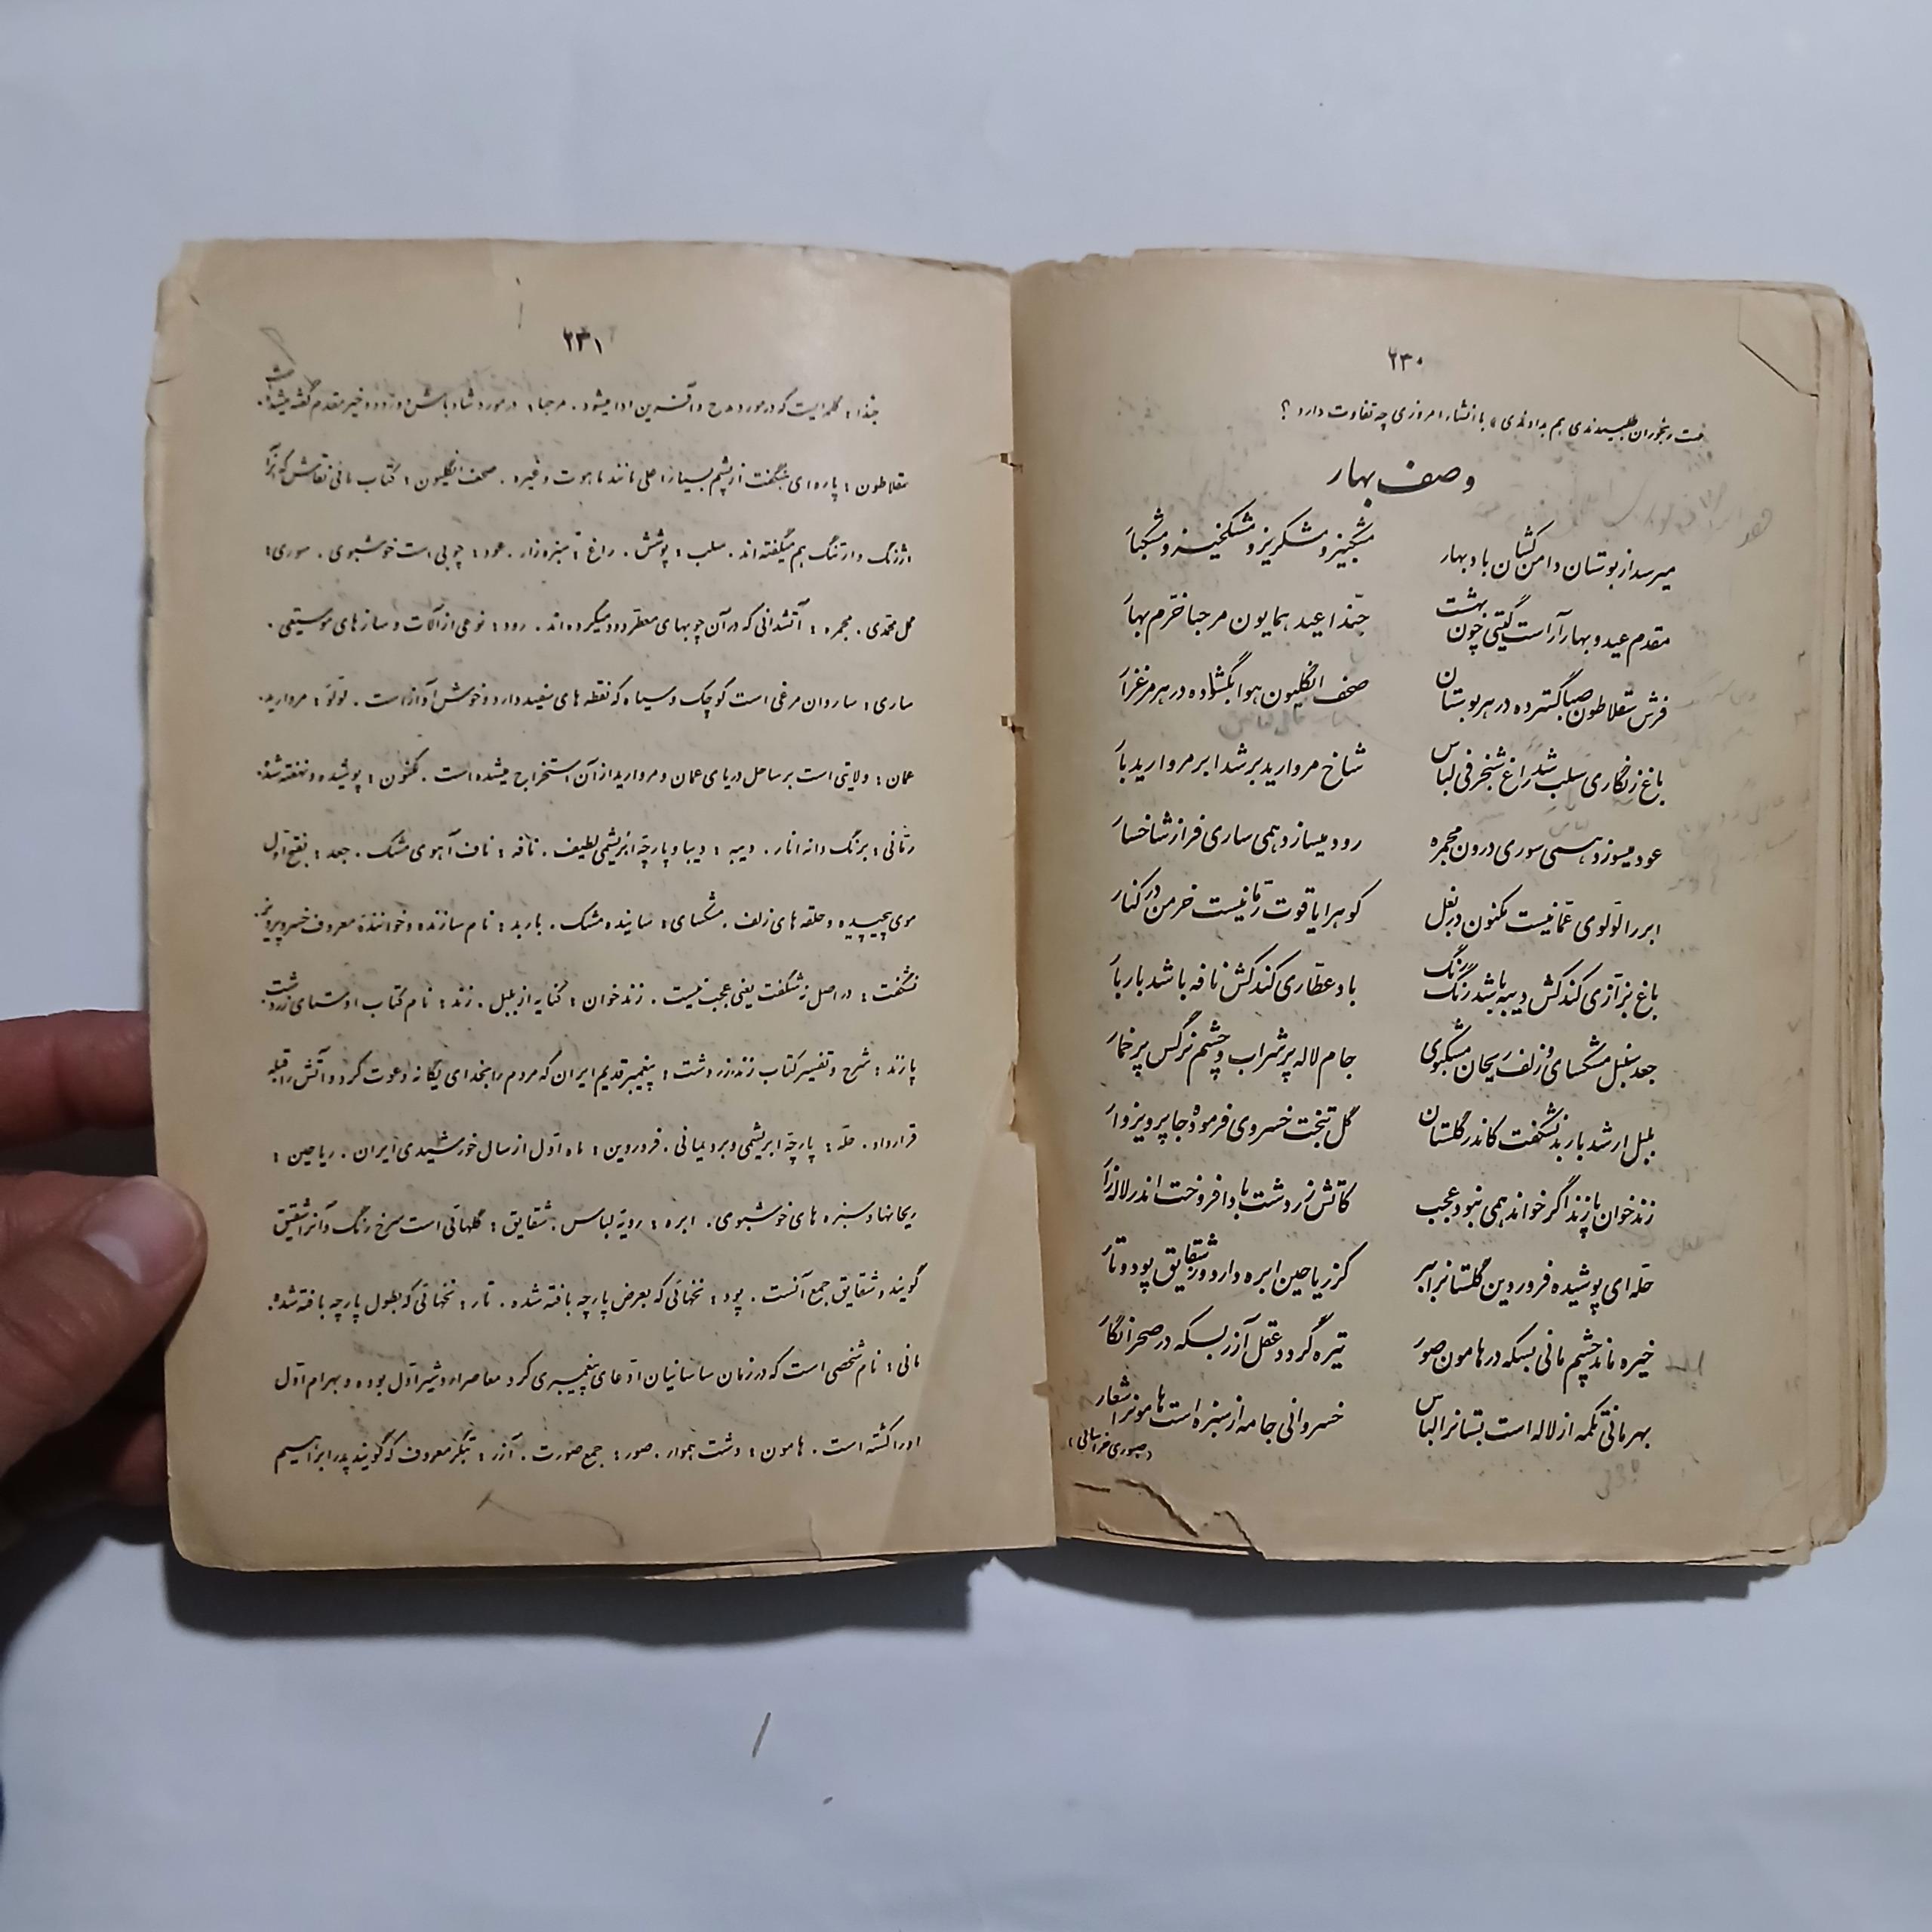 ۲۳۰
رنجوران طبیبیدندی هم بداوندی » با انشاء امروزی چه تفاوت دارد ؟
وصف بهار
میرسد از بوستان دامن کشان باد بهار مشکبیز و مشکریز و مشکخیز و مشکبار
مقدم عید و بهار آراست گیتی چون بهشت حبّذا عید همایون مرحبا خرّم بهار
فرش سقلاطون صبا گسترده در هر بوستان صحف انگلیون هوا بگشاده در هر مرغزار
باغ زنگاری سلب شد راغ شنجرفی لباس شاخ مروارید بر شد ابر مروارید بار
عود میسوزد همی سوری درون مجمره رود میسازد همی ساری فراز شاخسار
ابر را لؤلوی عمّانیست مکنون در بغل کوه را یاقوت رمّانیست خرمن در کنار
باغ بزّازی کند کش دیبه باشد رنگ رنگ باد عطّاری کند کش نافه باشد بار بار
جعد سنبل مشکسای و زلف ریحان مشکبوی جام لاله پر شراب و چشم نرگس پر خمار
بلبل ار شد باربد نشگفت کاندر گلستان گل بتخت خسروی فرموده جا پرویزوار
زند خوان پازند اگر خواند همی نبود عجب کآتش زردشت باد افروخت اندر لاله‌زار
حلّه‌ای پوشیده فروردین گلستانرا ببر کز ریاحین ابره دارد وز شقایق پود و تار
خیره ماند چشم مانی بسکه در هامون صور تیره گردد عقل آزر بسکه در صحرا نگار
بهرمانی تکمه از لاله است بستانرا لباس خسروانی جامه از سبزه است هامونرا شعار
(صبوری خراسانی)
۲۳۱
حبّذا : کلمه‌ایست که در مورد مدح و آفرین ادا میشود . مرحبا : در مورد شاد باش و خیر مقدم گفته میشد.
سقلاطون : پارچه‌ای هنگفت از پشم بسیار اعلی مانند ماهوت و غیره . صحف انگلیون : کتاب مانی نقاش که آنرا
ارژنگ و ارتنگ هم میگفته‌اند . سلب : پوشش . راغ : سبزه زار . عود : چوبی است خوشبوی . سوری :
گل محمّدی . مجمره : آتشدانی که در آن چوبهای معطّر دود میکرده‌اند . رود : نوعی از آلات و سازهای موسیقی .
ساری : ساروان مرغی است کوچک و سیاه که نقطه‌های سفید دارد و خوش آواز است . لؤلؤ : مروارید .
عمان : ولایتی است بر ساحل دریای عمان و مروارید از آن استخراج میشده است . مکنون : پوشیده و نهفته شده
رمّانی : برنگ دانه انار . دیبه : دیبا و پارچه ابریشمی لطیف . نافه : ناف آهوی مشک . جعد : بفتح اوّل
موی پیچیده و حلقه‌های زلف . مشکسای : ساینده مشک . باربد : نام سازنده و خواننده معروف خسرو پرویز .
نشگفت : در اصل نه شگفت یعنی عجب نیست . زند خوان : کنایه از بلبل . زند : نام کتاب اوستای زردشت .
پازند : شرح و تفسیر کتاب زند . زردشت : پیغمبر قدیم ایران که مردم را بخدای یگانه دعوت کرد و آتش را قبله
قرار داد . حلّه : پارچه ابریشمی و برد یمانی . فروردین : ماه اوّل از سال خورشیدی ایران . ریاحین :
ریحانها و سبزه های خوشبوی . ابره : رویّه لباس . شقایق : گلهائی است سرخ رنگ و آنرا شقیق
گویند و شقایق جمع آنست . پود : نخهائی که بعرض پارچه بافته شده . تار : نخهائی که بطول پارچه بافته شده .
مانی : نام شخصی است که در زمان ساسانیان ادّعای پیغمبری کرد معاصر اردشیر اوّل بوده و بهرام اوّل
او را کشته است . هامون : دشت هموار . صور : جمع صورت . آزر : بتگر معروف که گویند پدر ابراهیم